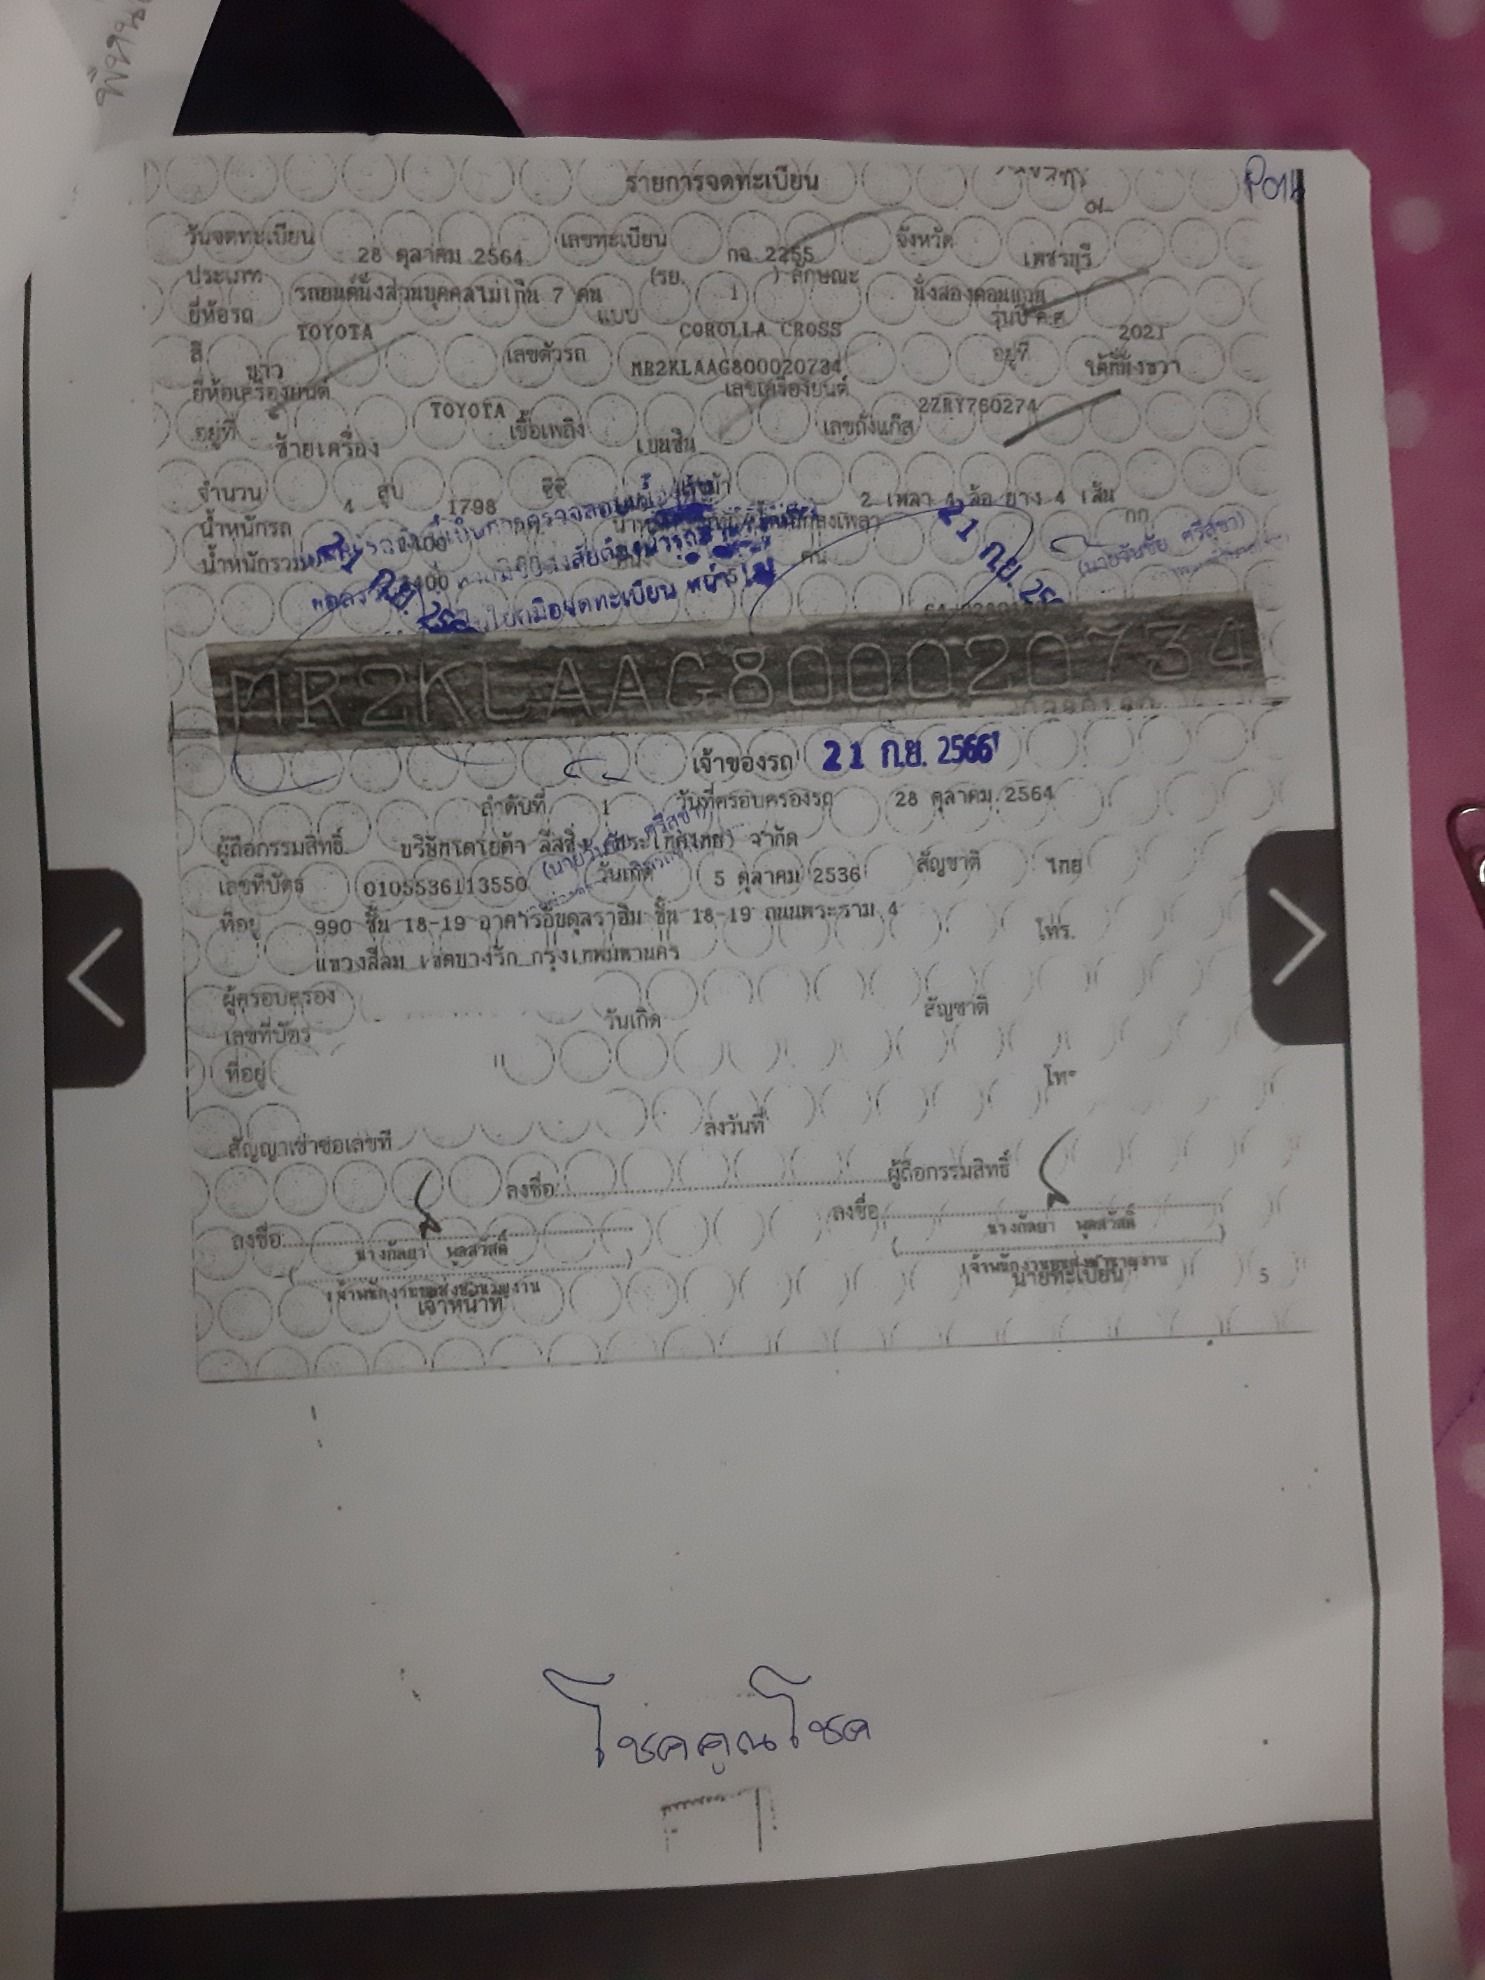 รายการจดทะเบียน
วันจดทะเบียน 28 ตุลาคม 2564 เลขทะเบียน กฉ 2255 จังหวัด เพชรบุรี
ประเภท รถยนต์นั่งส่วนบุคคลไม่เกิน 7 คน (รย. 1 ) ลักษณะ นั่งสองตอนแวน
ยี่ห้อรถ TOYOTA แบบ COROLLA CROSS รุ่นปี ค.ศ. 2021
สี ขาว เลขตัวรถ MR2KLAAG800020734 อยู่ที่ ใต้ที่นั่งขวา
ยี่ห้อเครื่องยนต์ TOYOTA เลขเครื่องยนต์ 2ZRY760274
อยู่ที่ ซ้ายเครื่อง เชื้อเพลิง เบนซิน เลขถังแก๊ส
จำนวน 4 สูบ 1798 ซีซี 2 เพลา 4 ล้อ ยาง 4 เส้น
น้ำหนักรถ 1400 กก
น้ำหนักรวม 1400 คน
21 ก.ย.
21 ก.ย.
MR2KLAAG800020734
เจ้าของรถ 21 ก.ย. 2566
ลำดับที่ 1 วันที่ครอบครองรถ 28 ตุลาคม 2564
ผู้ถือกรรมสิทธิ์ บริษัทโตโยต้า ลีสซิ่ง (ประเทศไทย) จำกัด
เลขที่บัตร 0105536113550 วันเกิด 5 ตุลาคม 2536 สัญชาติ ไทย
ที่อยู่ 990 ชั้น 18-19 อาคารอับดุลราฮิม ชั้น 18-19 ถนนพระราม 4 โทร.
แขวงสีลม เขตบางรัก กรุงเทพมหานคร
ผู้ครอบครอง
เลขที่บัตร วันเกิด สัญชาติ
ที่อยู่
สัญญาเช่าซื้อเลขที่ ลงวันที่
ลงชื่อ ผู้ถือกรรมสิทธิ์
ลงชื่อ ลงชื่อ
นางกัลยา พูลสวัสดิ์ นางกัลยา พูลสวัสดิ์
เจ้าพนักงานขนส่งชำนาญงาน เจ้าพนักงานขนส่งชำนาญงาน
เจ้าหน้าที่ นายทะเบียน 5
โชคคูณโชค